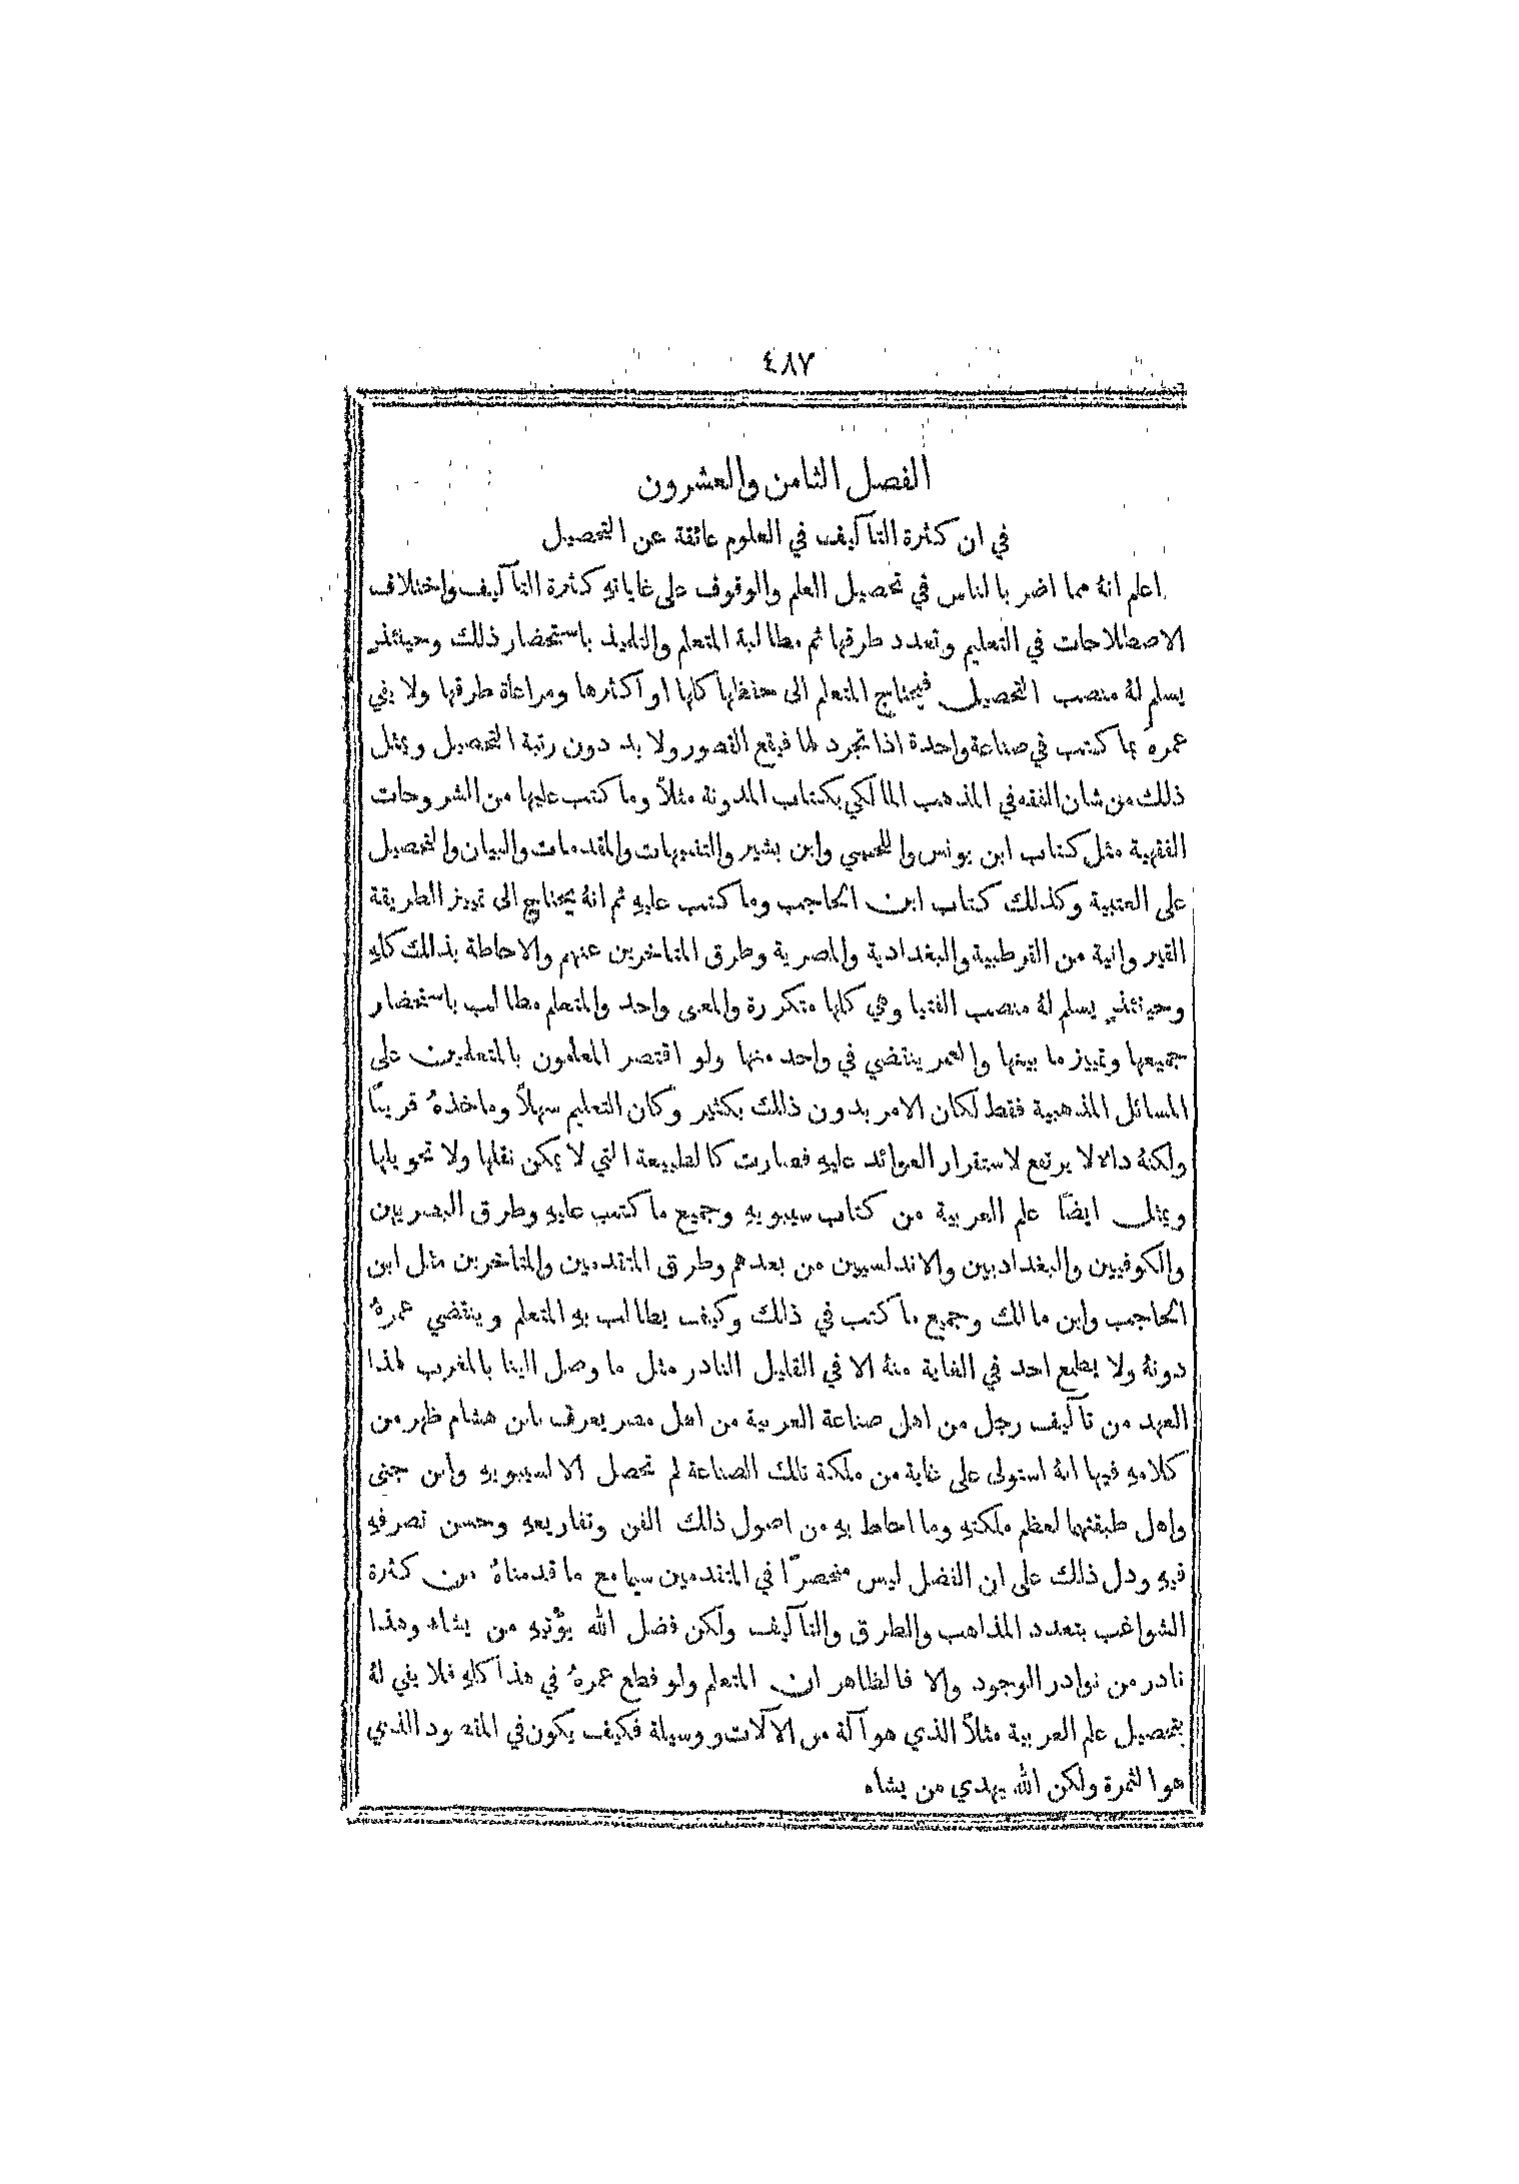 ٤٨٧
الفصل الثامن والعشرون
في ان كثرة التآكيف في العلوم عائقة عن التحصيل
اعلم انهُ مما اضر بالناس في تحصيل العلم والوقوف على غاياتهِ كثرة التآليف واختلاف
الاصطلاحات في التعليم وتعدد طرقها ثم مطالبة المتعلم والتلميذ باستحضار ذلك وحينئذٍ
يسلم لهُ منصب التحصيل فيحتاج المتعلم الى حفظها كلها او اكثرها ومراعاة طرقها ولا يفي
عمرهُ بما كتب في صناعة واحدة اذا تجرد لها فيقع القصور ولا بد دون رتبة التحصيل ويمثل
ذلك من شان الفقه في المذهب المالكي بكتاب المدونة مثلاً وما كتب عليها من الشروحات
الفقهية مثل كتاب ابن يونس واللخمي وابن بشير والتنبيهات والمقدمات والبيان والتحصيل
على العتبية وكذلك كتاب ابن الحاجب وما كتب عليهِ ثم انهُ يحتاج الى تمييز الطريقة
القيروانية من القرطبية والبغدادية والمصرية وطرق المتاخرين عنهم والاحاطة بذلك كلهِ
وحينئذٍ يسلم لهُ منصب الفتيا وهي كلها متكررة والمعنى واحد والمتعلم مطالب باستحضار
جميعها وتمييز ما بينها والعمر ينقضي في واحد منها ولو اقتصر المعلمون بالمتعلمين على
المسائل المذهبية فقط لكان الامر بدون ذلك بكثير وكان التعليم سهلاً وماخذهُ قريباً
ولكنهُ داء لا يرتفع لاستقرار العوائد عليهِ فصارت كالطبيعة التي لا يمكن نقلها ولا تحويلها
ويمثل ايضاً علم العربية من كتاب سيبويهِ وجميع ما كتب عليهِ وطرق البصريين
والكوفيين والبغداديين والاندلسيين من بعدهم وطرق المتقدمين والمتاخرين مثل ابن
الحاجب وابن مالك وجميع ما كتب في ذلك وكيف يطالب بهِ المتعلم وينقضي عمرهُ
دونهُ ولا يطمع احد في الغاية منهُ الا في القليل النادر مثل ما وصل الينا بالمغرب لهذا
العهد من تآليف رجل من اهل صناعة العربية من اهل مصر يعرف بابن هشام ظهر من
كلامهِ فيها انهُ استولى على غاية من ملكة تلك الصناعة لم تحصل الا لسيبويهِ وابن جنى
واهل طبقتهما لعظم ملكتهِ وما احاط بهِ من اصول ذلك الفن وتفاريعهِ وحسن تصرفهِ
فيهِ ودل ذلك على ان الفضل ليس منحصراً في المتقدمين سيما مع ما قدمناهُ من كثرة
الشواغب بتعدد المذاهب والطرق والتآليف ولكن فضل الله يؤتيهِ من يشاء وهذا
نادر من نوادر الوجود والا فالظاهر ان المتعلم ولو قطع عمرهُ في هذا كلهِ فلا يفي لهُ
بتحصيل علم العربية مثلاً الذي هو آلة من الآلات ووسيلة فكيف يكون في المقصود الذي
هو الثمرة ولكن الله يهدي من يشاء